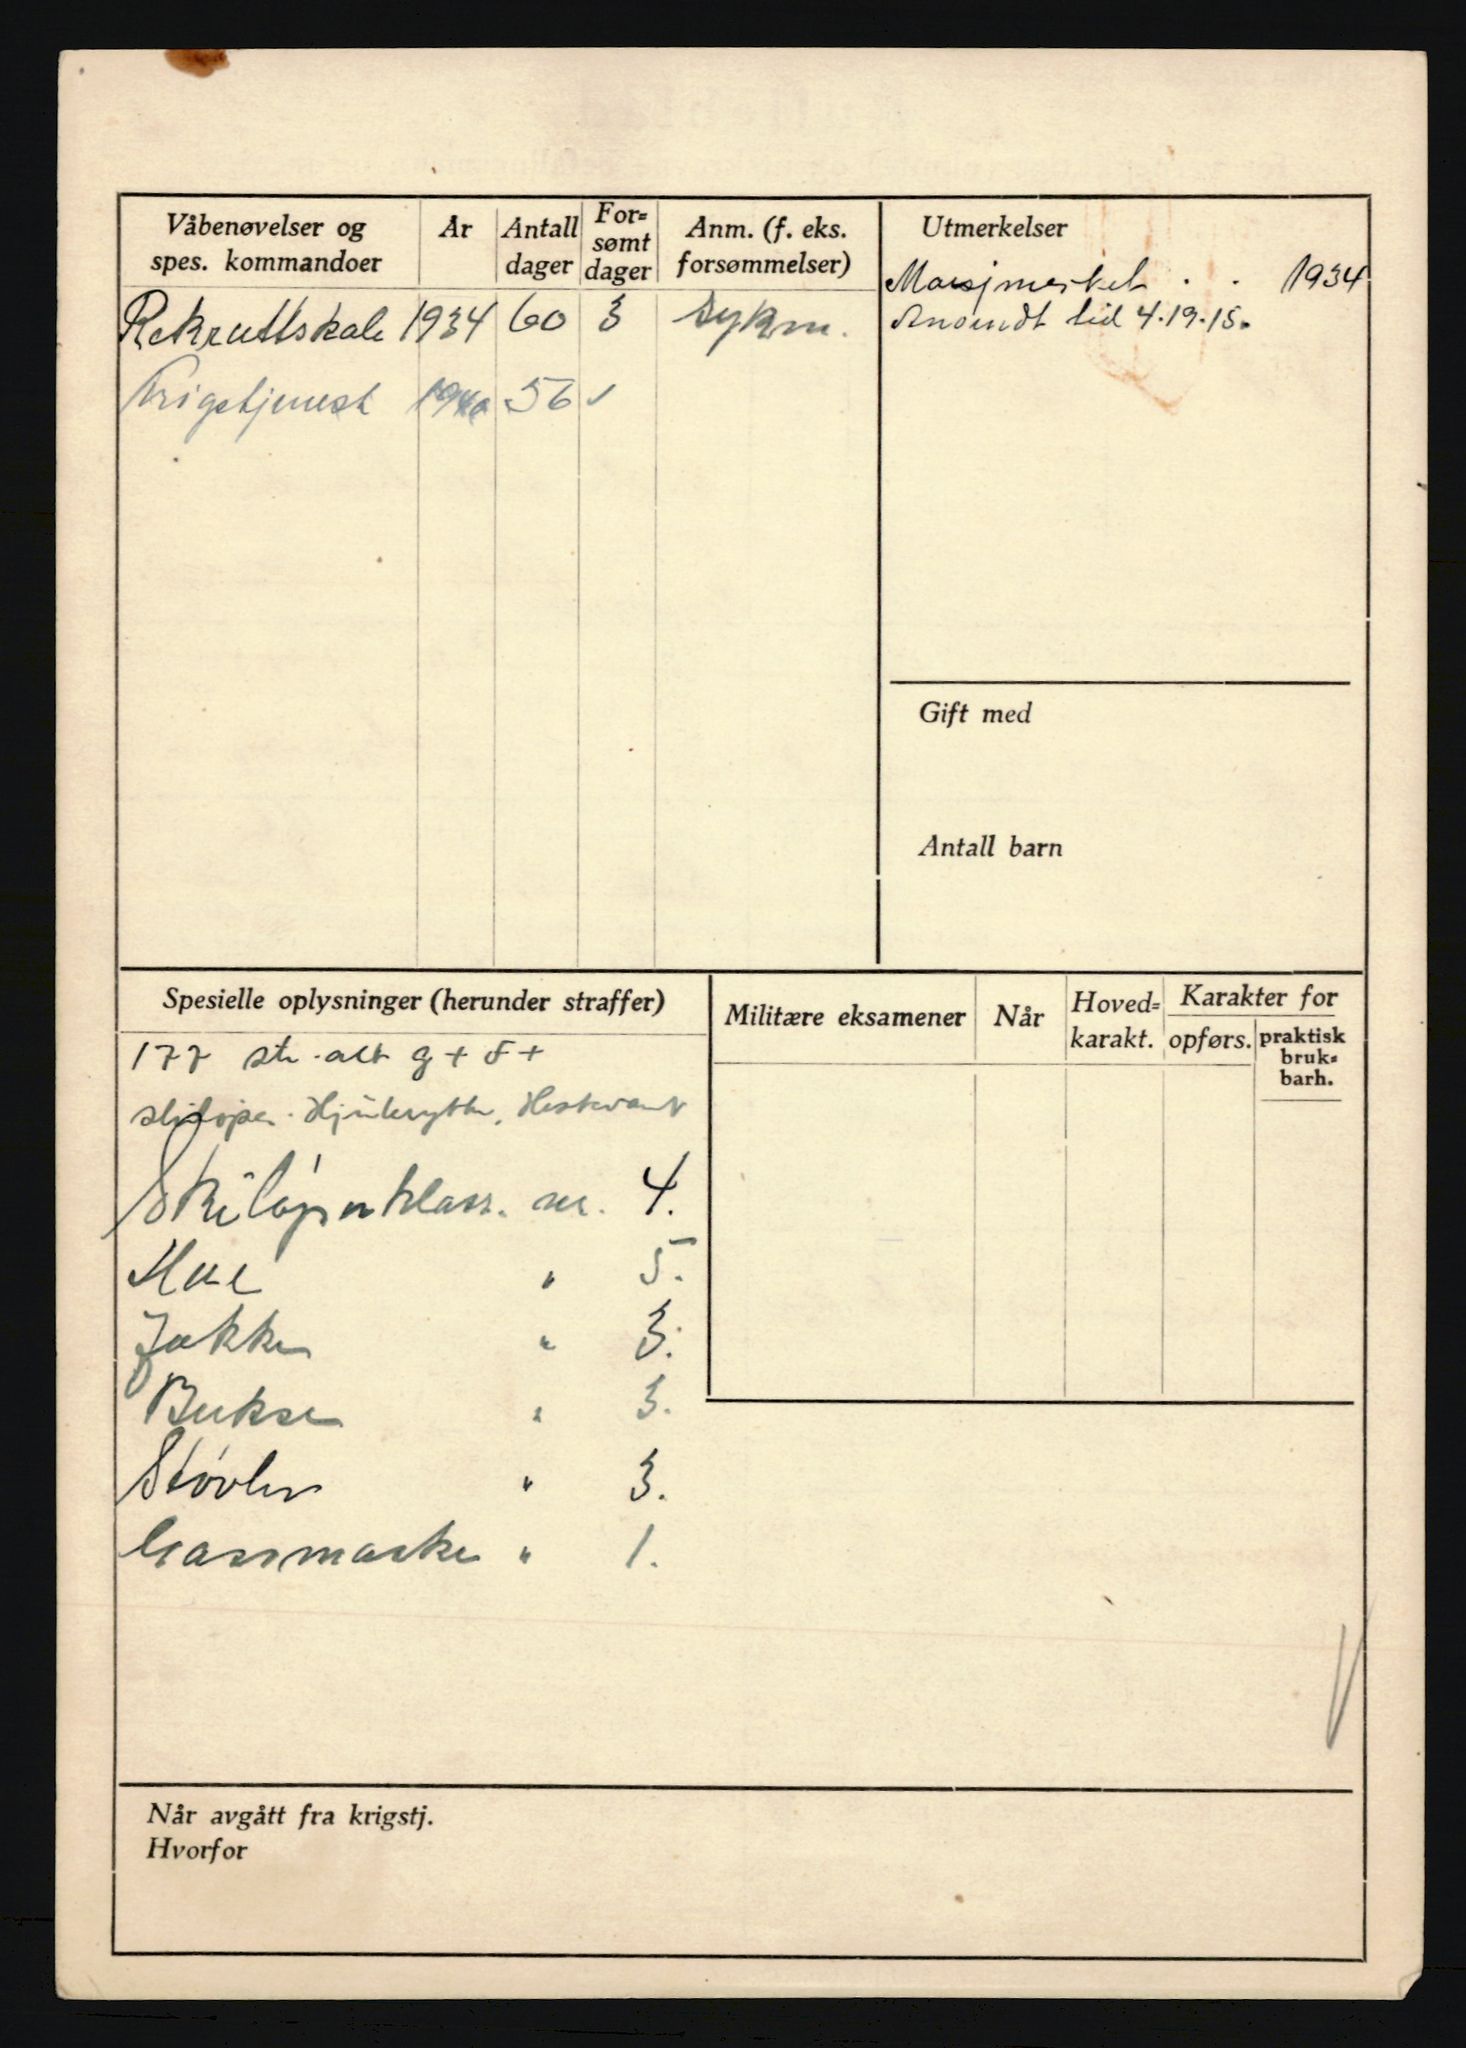 Våbenøvelser og
spes. kommandoer
År
Antall
dager
For=
sømt
dager
Anm. (f. eks.
forsømmelser)
Rekruttskole 1934 60 3 sykm.
Krigstjenest 1940 56 ✓
Utmerkelser
Marsjmerket . . 1934
Anvendt tid 4.19.15.
Gift med
Antall barn
Spesielle oplysninger (herunder straffer)
177 str. alt g + f +
skiløper. Hjulrytter, Hestevant
Skiløperklass. nr. 4.
Hue " 5.
Jakke " 3.
Bukse " 3.
Støvler " 3.
Gassmaske " 1.
Militære eksamener
Når
Hoved=
karakt.
Karakter for
opførs.
praktisk
bruk=
barh.
Når avgått fra krigstj.
Hvorfor